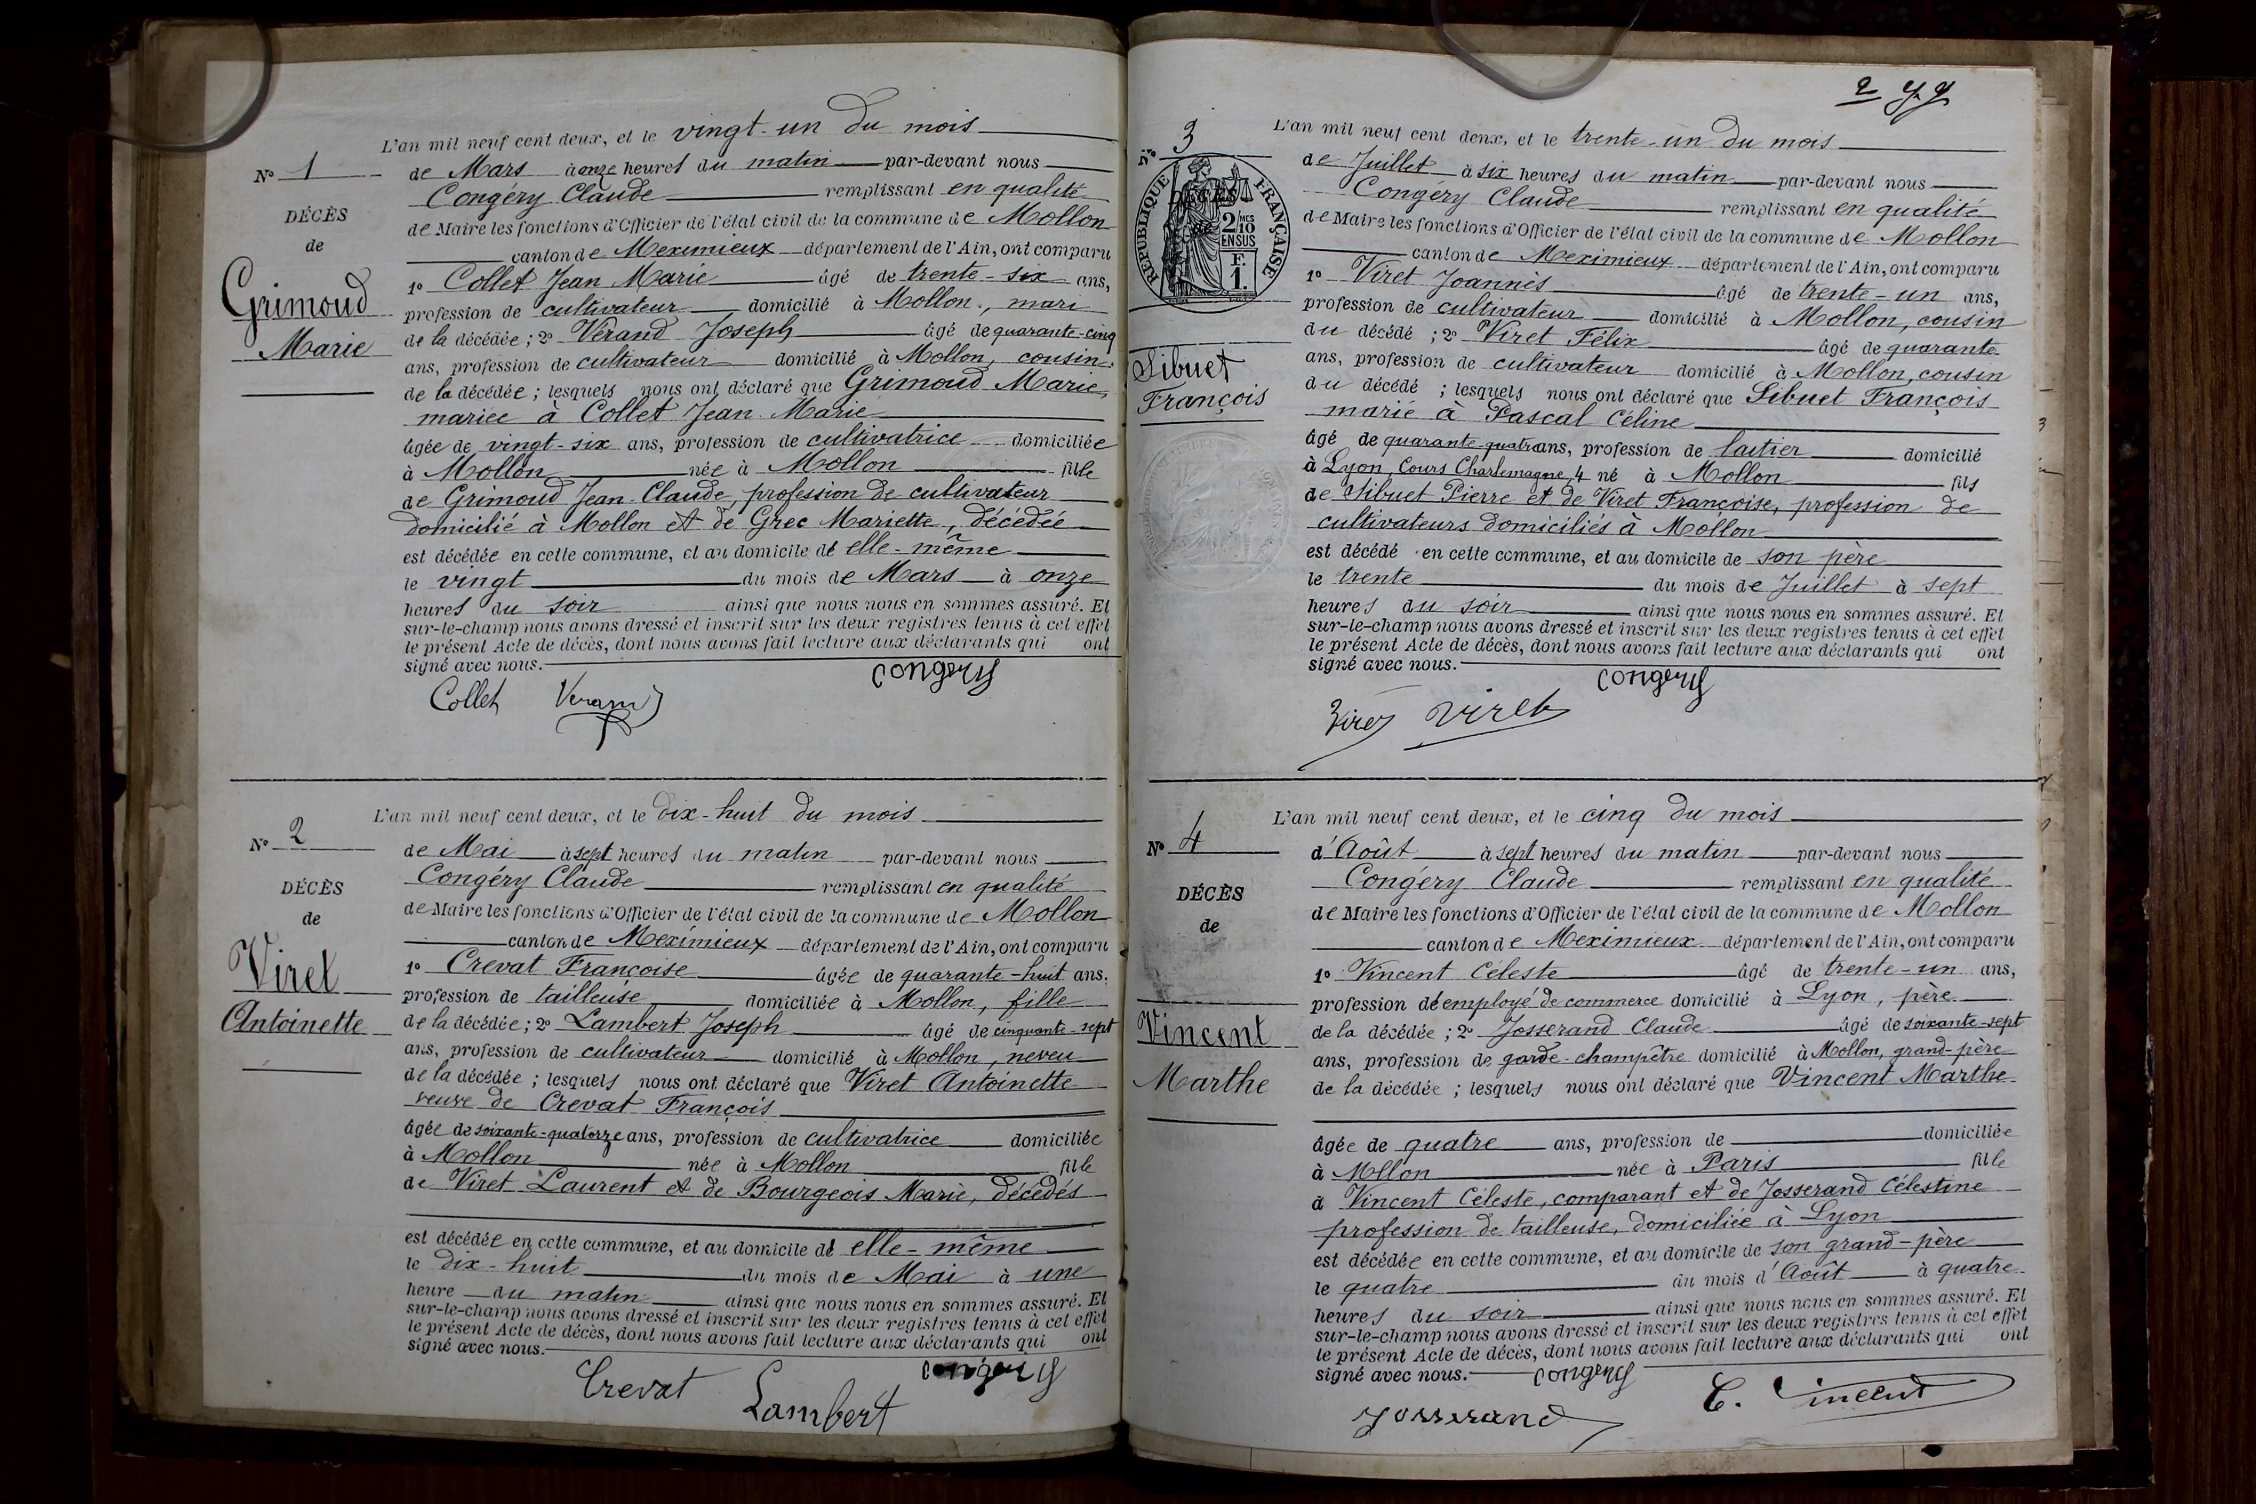 L'an mil neuf cent deux, et le vingt-un du mois
N° 1
de Mars à onze heures du matin par-devant nous
Congéry Claude remplissant en qualité
DÉCÈS
de Maire les fonctions d'Officier de l'état civil de la commune de Mollon
de
canton de Meximieux département de l'Ain, ont comparu
Grimoud
Marie
1° Collet Jean Marie âgé de trente-six ans,
profession de cultivateur domicilié à Mollon, mari
de la décédée ; 2° Vérand Joseph âgé de quarante-cinq
ans, profession de cultivateur domicilié à Mollon, cousin
de la décédée ; lesquels nous ont déclaré que Grimoud Marie,
mariée à Collet Jean Marie
âgée de vingt-six ans, profession de cultivatrice domiciliée
à Mollon née à Mollon fille
de Grimoud Jean-Claude, profession de cultivateur
domicilié à Mollon et de Grec Mariette, décédée
est décédée en cette commune, et au domicile de elle-même
le vingt du mois de Mars à onze
heures du soir ainsi que nous nous en sommes assuré. Et
sur-le-champ nous avons dressé et inscrit sur les deux registres tenus à cet effet
le présent Acte de décès, dont nous avons fait lecture aux déclarants qui ont
signé avec nous.
Collet Verand congery
L'an mil neuf cent deux, et le dix-huit du mois
N° 2
de Mai à sept heures du matin par-devant nous
Congéry Claude remplissant en qualité
DÉCÈS
de Maire les fonctions d'Officier de l'état civil de la commune de Mollon
de
canton de Meximieux département de l'Ain, ont comparu
Viret
Antoinette
1° Crevat Françoise âgée de quarante-huit ans,
profession de tailleuse domiciliée à Mollon, fille
de la décédée ; 2° Lambert Joseph âgé de cinquante-sept
ans, profession de cultivateur domicilié à Mollon, neveu
de la décédée ; lesquels nous ont déclaré que Viret Antoinette
veuve de Crevat François
âgée de soixante-quatorze ans, profession de cultivatrice domiciliée
à Mollon née à Mollon fille
de Viret Laurent et de Bourgeois Marie, décédés
est décédée en cette commune, et au domicile de elle-même
le dix-huit du mois de Mai à une
heure du matin ainsi que nous nous en sommes assuré. Et
sur-le-champ nous avons dressé et inscrit sur les deux registres tenus à cet effet
le présent Acte de décès, dont nous avons fait lecture aux déclarants qui ont
signé avec nous.
Crevat Lambert congery
2
L'an mil neuf cent deux, et le trente-un du mois
N° 3
RÉPUBLIQUE FRANÇAISE
DÉCÈS
de
2/10 MES
EN SUS
F.
1.
de Juillet à six heures du matin par-devant nous
Congéry Claude remplissant en qualité
de Maire les fonctions d'Officier de l'état civil de la commune de Mollon
canton de Meximieux département de l'Ain, ont comparu
Sibuet
François
1° Viret Joannès âgé de trente-un ans,
profession de cultivateur domicilié à Mollon, cousin
du décédé ; 2° Viret Félix âgé de quarante
ans, profession de cultivateur domicilié à Mollon, cousin
du décédé ; lesquels nous ont déclaré que Sibuet François
marié à Pascal Céline
âgé de quarante-quatre ans, profession de laitier domicilié
à Lyon, Cours Charlemagne, 4 né à Mollon fils
de Sibuet Pierre et de Viret Françoise, profession de
cultivateurs domiciliés à Mollon
est décédé en cette commune, et au domicile de son père
le trente du mois de Juillet à sept
heures du soir ainsi que nous nous en sommes assuré. Et
sur-le-champ nous avons dressé et inscrit sur les deux registres tenus à cet effet
le présent Acte de décès, dont nous avons fait lecture aux déclarants qui ont
signé avec nous.
Viret Viret congery
L'an mil neuf cent deux, et le cinq du mois
N° 4
d'Août à sept heures du matin par-devant nous
Congéry Claude remplissant en qualité
DÉCÈS
de Maire les fonctions d'Officier de l'état civil de la commune de Mollon
de
canton de Meximieux département de l'Ain, ont comparu
Vincent
Marthe
1° Vincent Céleste âgé de trente-un ans,
profession de employé de commerce domicilié à Lyon, père
de la décédée ; 2° Josserand Claude âgé de soixante-sept
ans, profession de garde-champêtre domicilié à Mollon, grand-père
de la décédée ; lesquels nous ont déclaré que Vincent Marthe
âgée de quatre ans, profession de domiciliée
à Mllon née à Paris fille
d Vincent Céleste, comparant et de Josserand Célestine
profession de tailleuse, domiciliée à Lyon
est décédée en cette commune, et au domicile de son grand-père
le quatre du mois d'Août à quatre
heures du soir ainsi que nous nous en sommes assuré. Et
sur-le-champ nous avons dressé et inscrit sur les deux registres tenus à cet effet
le présent Acte de décès, dont nous avons fait lecture aux déclarants qui ont
signé avec nous.
congery
Josserand C. Vincent